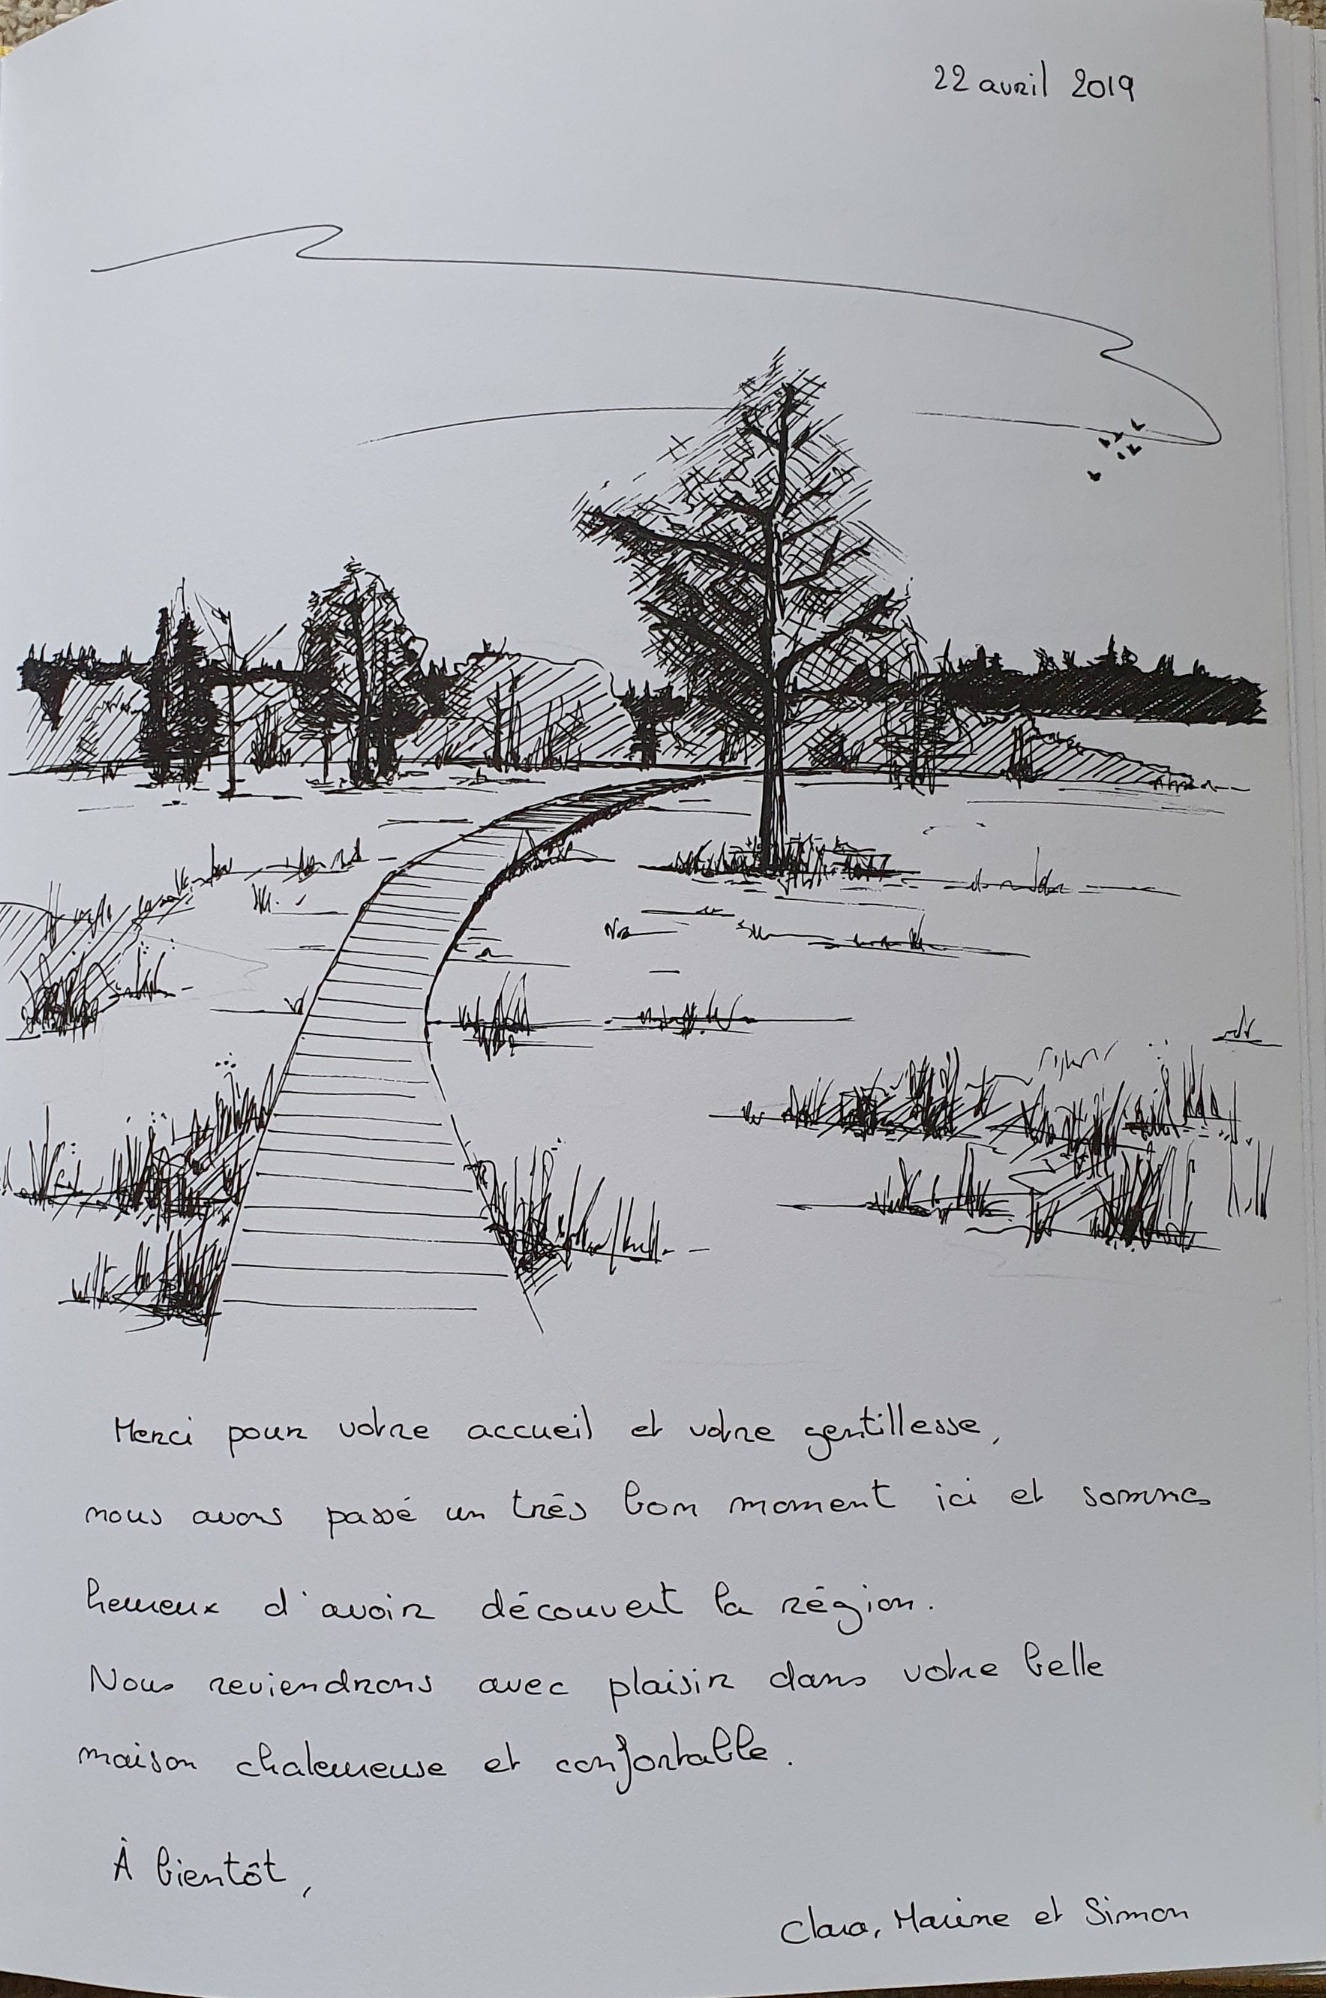 22 avril 2019
Merci pour votre accueil et votre gentillesse,
nous avons passé un très bon moment ici et sommes
heureux d'avoir découvert la région.
Nous reviendrons avec plaisir dans votre belle
maison chaleureuse et confortable.
À bientôt,
Clara, Marine et Simon